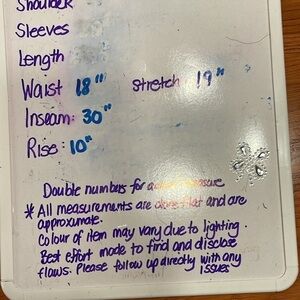 Shoulder
Sleeves
Length
Waist 18" stretch 19"
Inseam: 30"
Rise: 10"
Double numbers for actual measure
* All measurements are done flat and are
approximate.
Colour of item may vary due to lighting.
Best effort made to find and disclose
flaws. Please follow up directly with any
issues